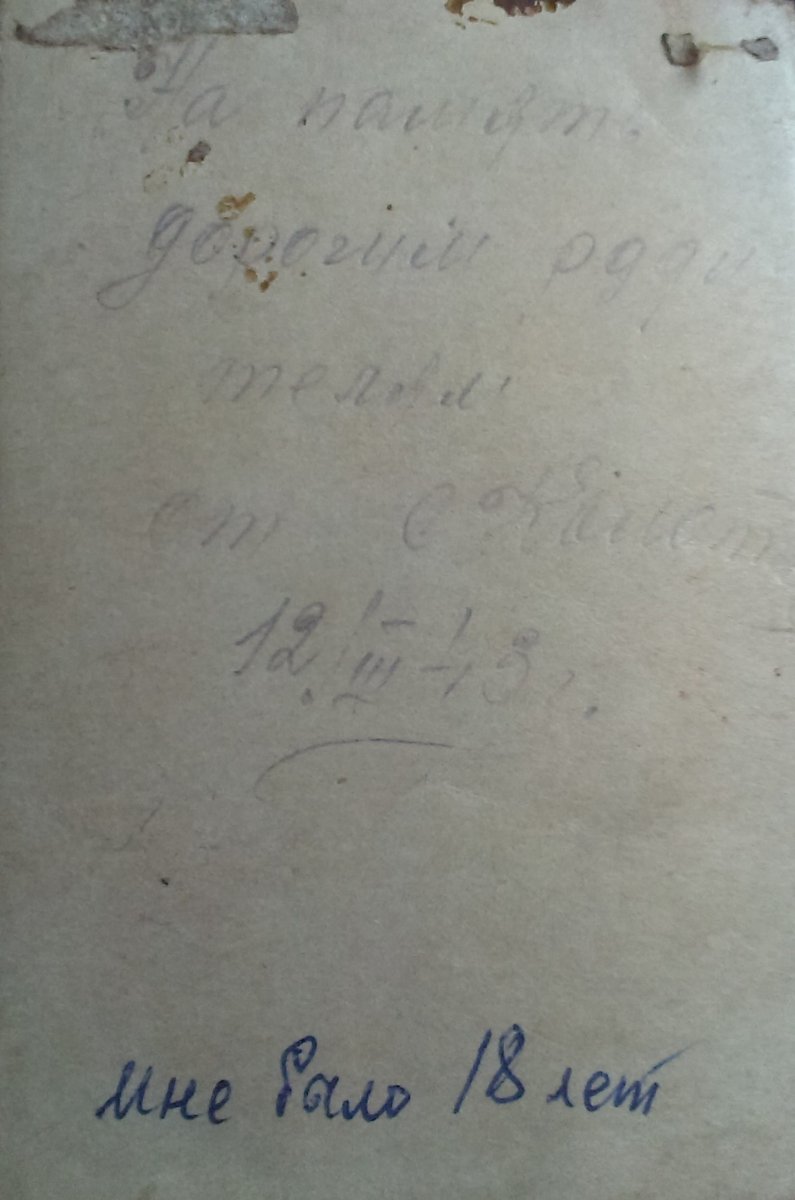 На память
дорогим роди
телям
от
12 III 43 г.
мне было 18 лет